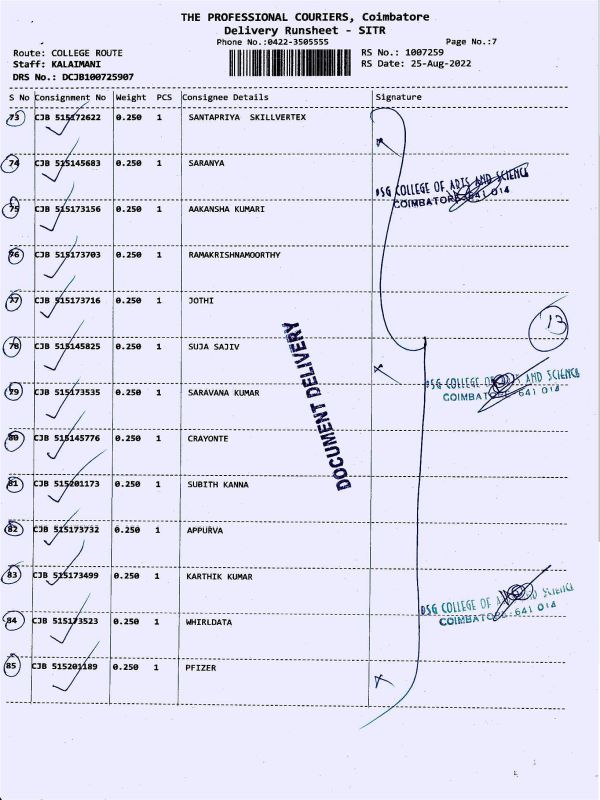 THE PROFESSIONAL COURIERS, Coimbatore
Delivery Runsheet - SITR
Phone No.:0422-3505555 Page No.:7
Route: COLLEGE ROUTE RS No.: 1007259
Staff: KALAIMANI RS Date: 25-Aug-2022
DRS No.: DCJB100725907
S No Consignment No Weight PCS Consignee Details Signature
73 CJB 515172622 0.250 1 SANTAPRIYA SKILLVERTEX
74 CJB 515145683 0.250 1 SARANYA
PSG COLLEGE OF ARTS AND SCIENCE
COIMBATORE-641 014
75 CJB 515173156 0.250 1 AAKANSHA KUMARI
76 CJB 515173703 0.250 1 RAMAKRISHNAMOORTHY
77 CJB 515173716 0.250 1 JOTHI
13
78 CJB 515145825 0.250 1 SUJA SAJIV
DOCUMENT DELIVERY
PSG COLLEGE OF ARTS AND SCIENCE
COIMBATORE-641 014
79 CJB 515173535 0.250 1 SARAVANA KUMAR
80 CJB 515145776 0.250 1 CRAYONTE
81 CJB 515201173 0.250 1 SUBITH KANNA
82 CJB 515173732 0.250 1 APPURVA
83 CJB 515173499 0.250 1 KARTHIK KUMAR
PSG COLLEGE OF ARTS AND SCIENCE
COIMBATORE-641 014
84 CJB 515173523 0.250 1 WHIRLDATA
85 CJB 515201189 0.250 1 PFIZER